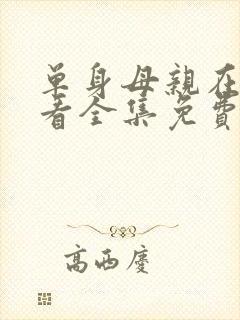 单身母親在
看全集免費
高西慶